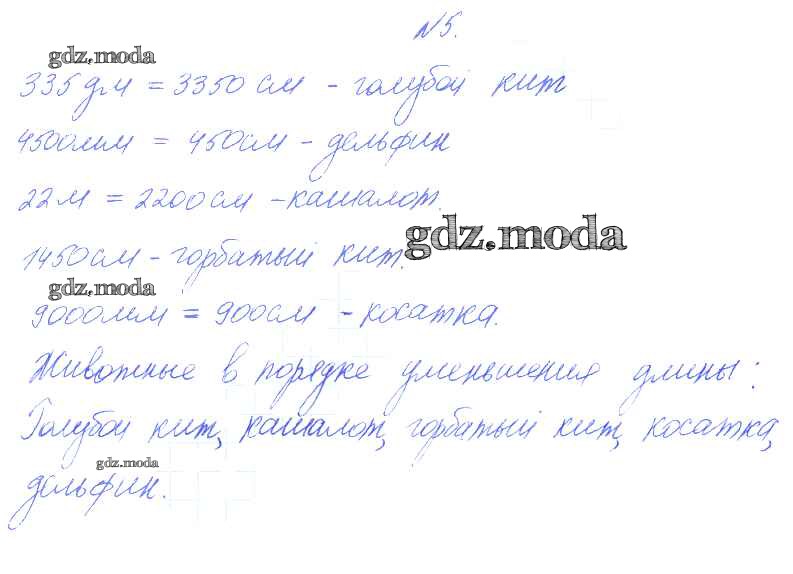 №5.
gdz.moda
335дм = 3350 см - голубой кит
4500мм = 450см - дельфин
22м = 2200см - кашалот.
1450см - горбатый кит.
gdz.moda
gdz.moda
9000мм = 900см - косатка.
Животные в порядке уменьшения длины:
Голубой кит, кашалот, горбатый кит, косатка,
gdz.moda
дельфин.